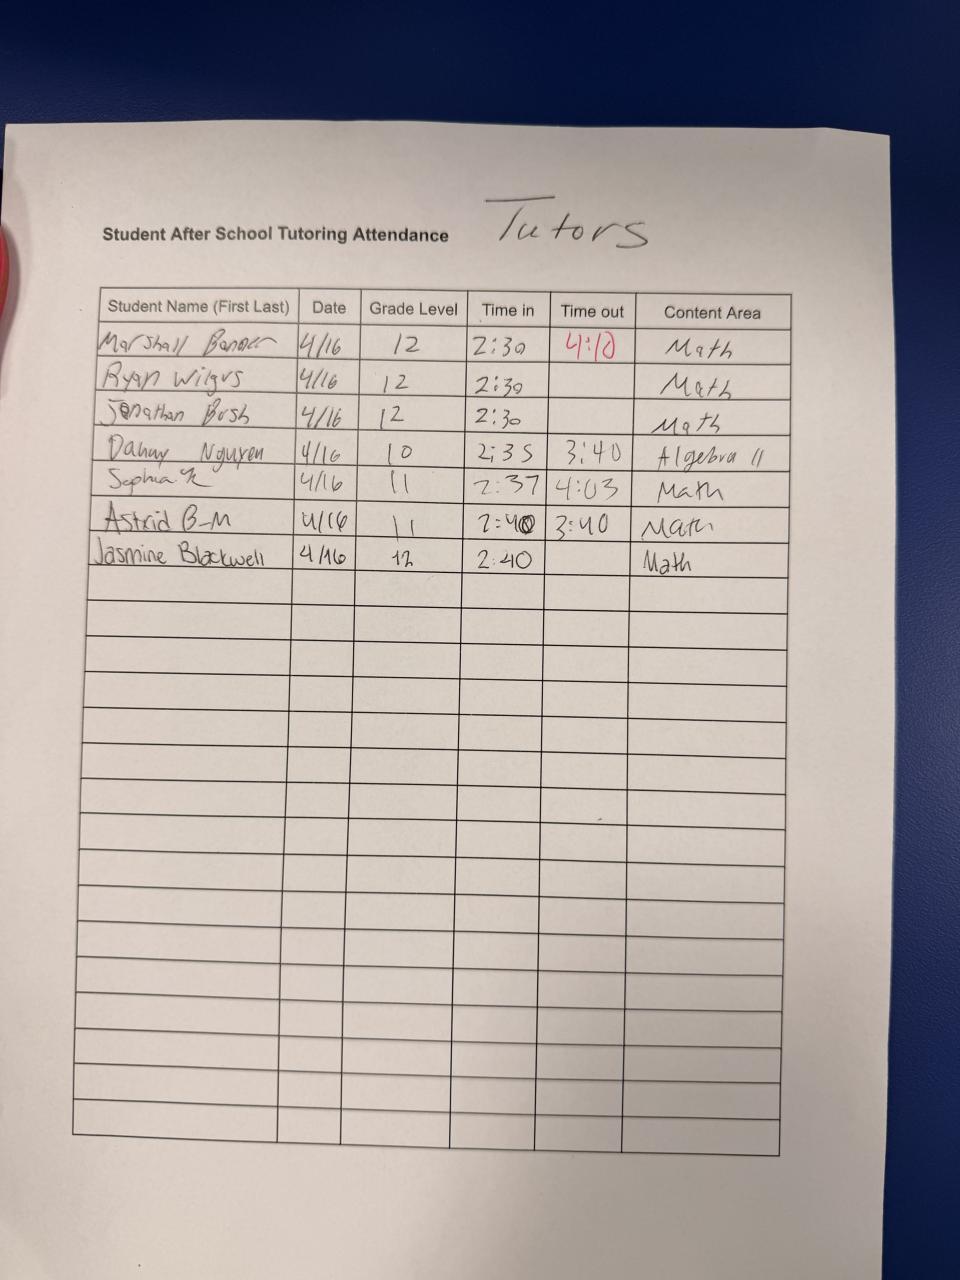 Tutors
Student After School Tutoring Attendance
Student Name (First Last) Date Grade Level Time in Time out Content Area
Marshall 4/16 12 2:30 4:10 Math
Ryan Wilgus 4/16 12 2:30 Math
Jonathan Bush 4/16 12 2:30 Math
Nguyen 4/16 10 2:35 3:40 Algebra II
Sophia K 4/16 11 2:37 4:03 Math
Astrid B-M 4/16 11 2:40 3:40 Math
Jasmine Blackwell 4/16 12 2:40 Math